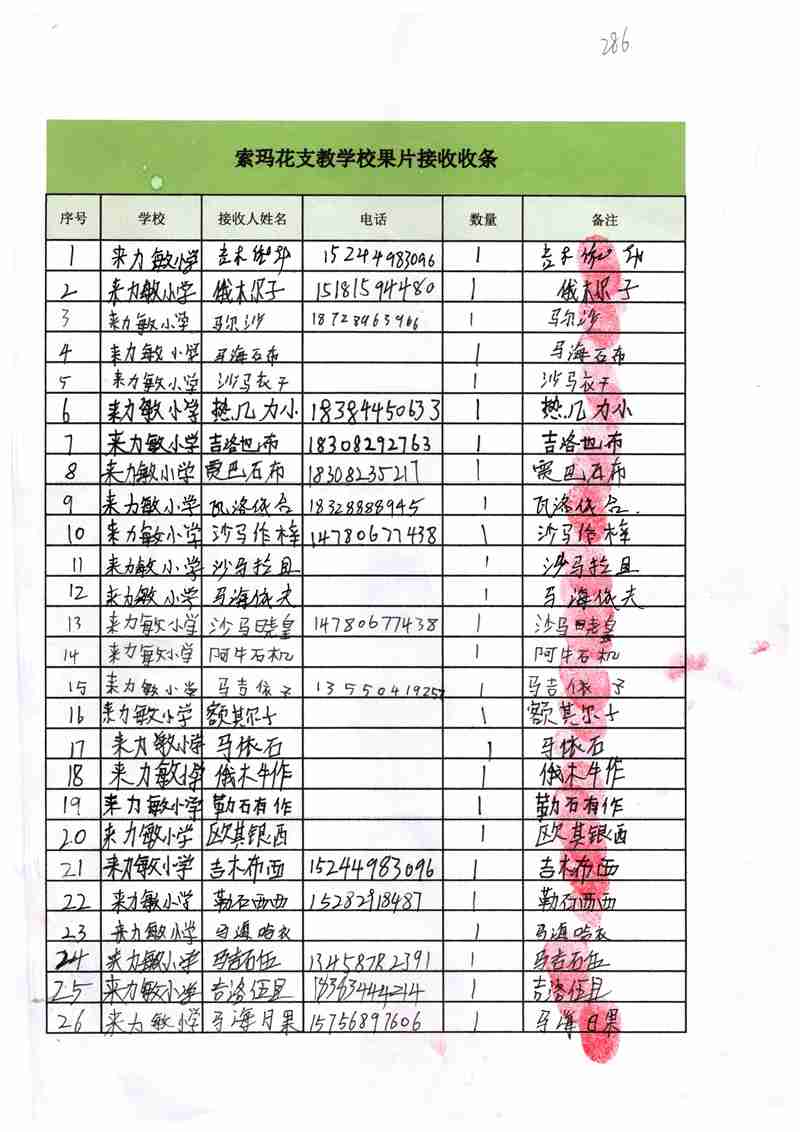 286
索玛花支教学校果片接收收条
序号 学校 接收人姓名 电话 数量 备注
1 来力敏小学 吉木 15244983096 1 吉木
2 来力敏小学 俄木尔子 15181594480 1 俄木尔子
3 来力敏小学 马尔沙 18723963966 1 马尔沙
4 来力敏小学 马海石布 1 马海石布
5 来力敏小学 沙马衣子 1 沙马衣子
6 来力敏小学 热几力小 18384450633 1 热几力小
7 来力敏小学 吉洛也布 18308292763 1 吉洛也布
8 来力敏小学 贾巴石布 18308235217 1 贾巴石布
9 来力敏小学 瓦洛依合 18328888945 1 瓦洛依合.
10 来力敏小学 沙马作梓 14780677438 1 沙马作梓
11 来力敏小学 沙马拉且 1 沙马拉且
12 来力敏小学 马海依夫 1 马海依夫
13 来力敏小学 沙马晓皇 14780677438 1 沙马晓皇
14 来力敏小学 阿牛石机 1 阿牛石机
15 来力敏小学 马吉依子 1355041925 1 马吉依子
16 来力敏小学 额其尔子 1 额其尔子
17 来力敏小学 马依石 1 马依石
18 来力敏小学 俄木牛作 1 俄木牛作
19 来力敏小学 勒石有作 1 勒石有作
20 来力敏小学 欧其银西 1 欧其银西
21 来力敏小学 吉木布西 15244983096 1 吉木布西
22 来力敏小学 勒石西西 15282918487 1 勒石西西
23 来力敏小学 马海哈衣 1 马海哈衣
24 来力敏小学 马吉石伍 13458782391 1 马吉石伍
25 来力敏小学 吉洛伍且 1 吉洛伍且
26 来力敏小学 马海日果 15756897606 1 马海日果